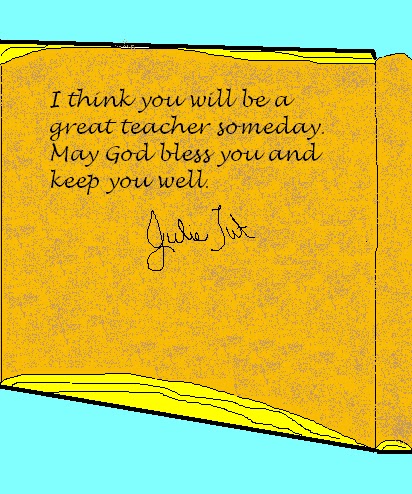 I think you will be a
great teacher someday.
May God bless you and
keep you well.
Julie Tut